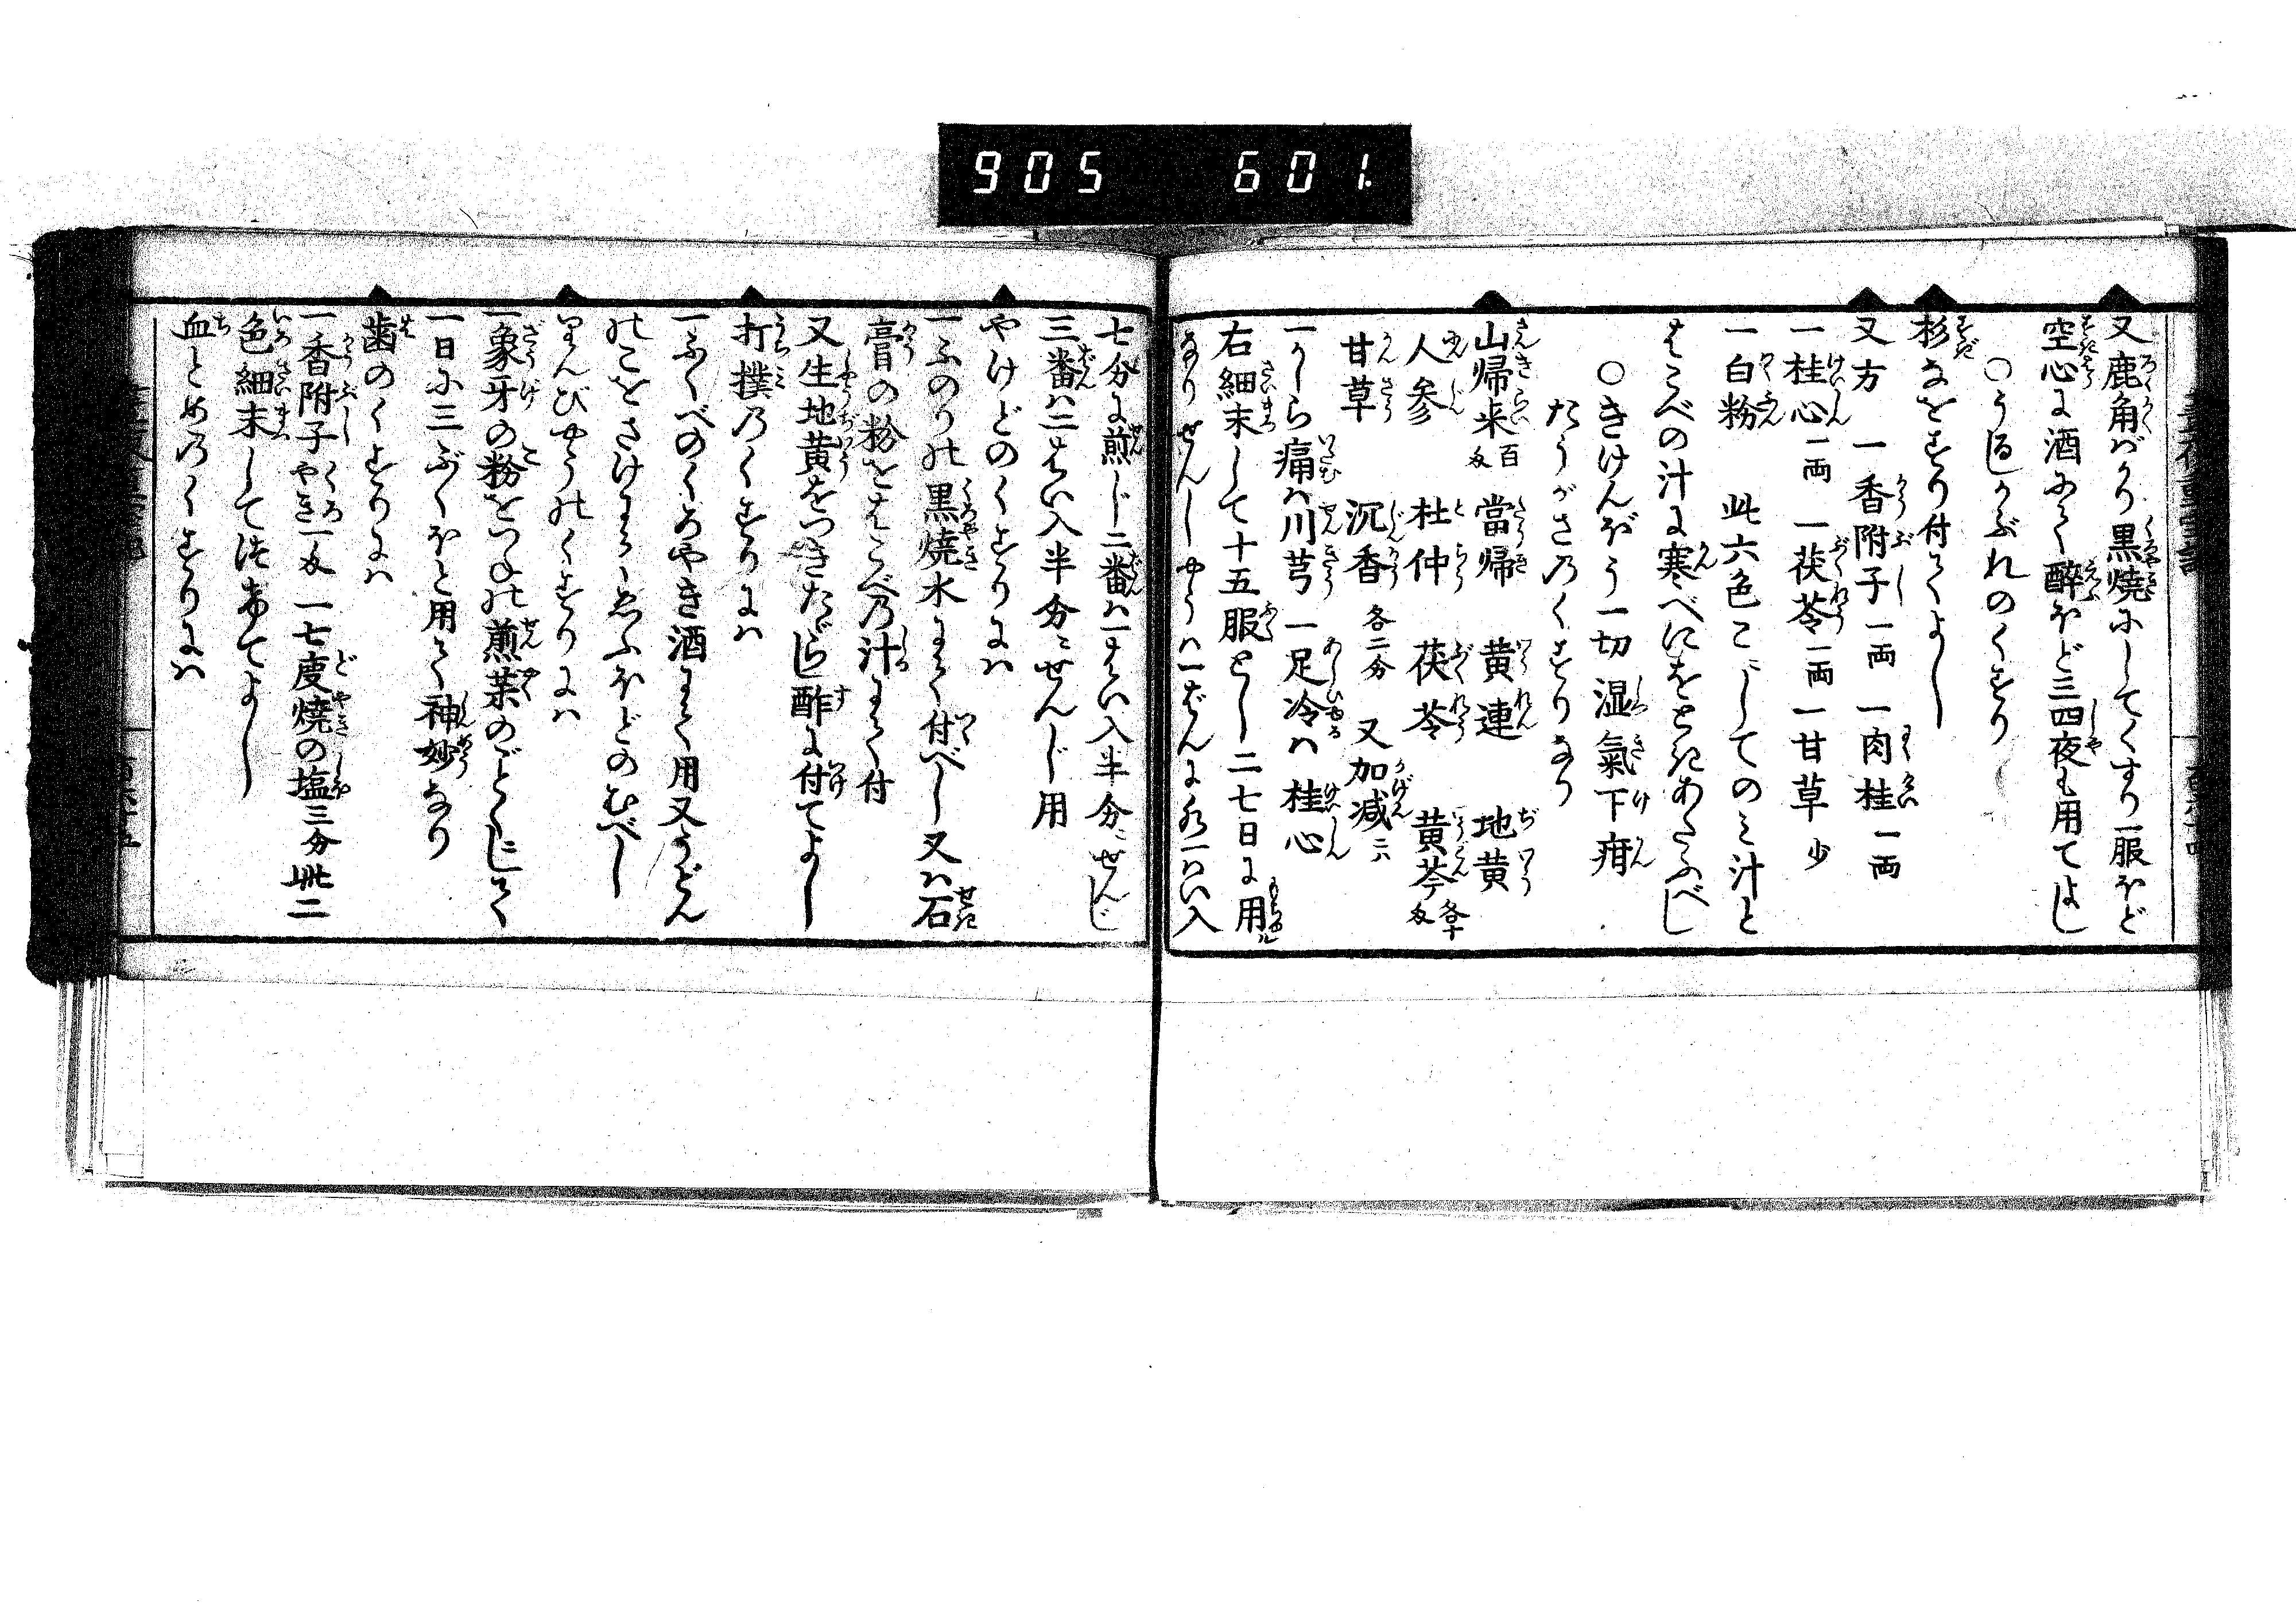 905 601
又鹿角ばかり黒焼にしてくすり一服ほど
空心に酒にて酔ほど三四夜も用てよし
○うるしかぶれのくすり
杉なをすり付てよし
又方 一香附子一両 一肉桂一両
一桂心一両 一茯苓一両 一甘草少
一白粉 此六色こにしてのミ汁と
はこべの汁に寒べにをときあたふべし
○きけんぼう一切湿氣下疳
たうがさのくすりなり
山帰来百匁 當帰 黄連 地黄
人参 杜仲 茯苓 黄芩各十匁
甘草 沉香各二分 又加减ニハ
一かしら痛ハ川芎一足冷ハ桂心
右細末して十五服とし二七日に用ル
なりせんじやうハ一ばんに水一ぱい入
七分に煎じ二番ハ一ぱい入半分ニせんじ
三番ハ二はい入半分ニせんじ用
やけどのくすりにハ
一ふのりの黒焼水にて付べし又ハ石
膏の粉をはこべ乃汁にて付
又生地黄をつきたゞらし酢に付てよし
打撲乃くすりにハ
一ふくべのくろやき酒にて用又うどん
のこをさけにてゑふほどのむべし
りんびやうのくすりにハ
一象牙の粉をつねの煎薬のごとくにして
一日に三ぶくほと用て神妙なり
歯のくすりにハ
一香附子やき一匁 一七度焼の塩三分 此二
色細末して後あてよし
血とめ乃くすりにハ